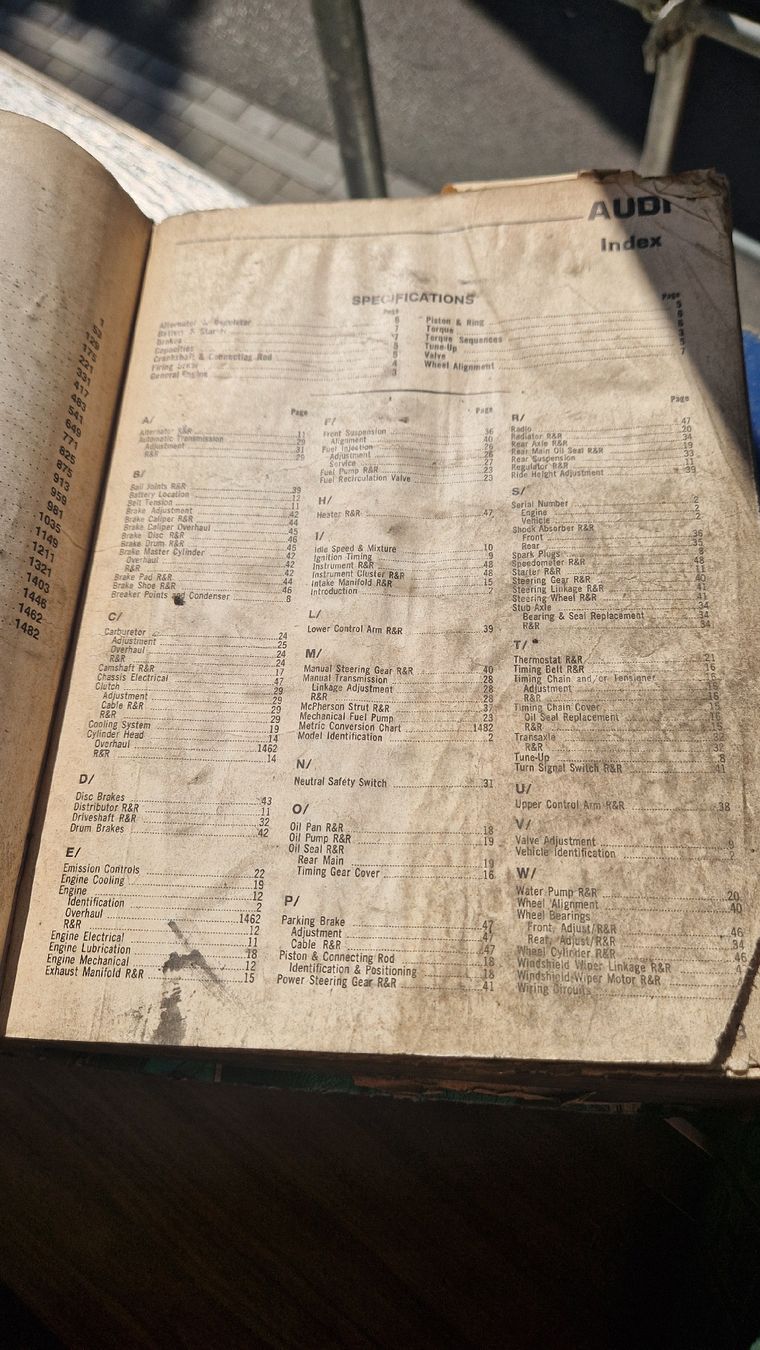 3
53
129
175
221
331
417
483
541
649
771
825
875
913
959
981
1035
1149
1211
1321
1403
1446
1462
1482
AUDI
Index
SPECIFICATIONS
Page
Alternator & Regulator 6
Battery & Starter 7
Brakes 7
Capacities 5
Crankshaft & Connecting Rod 5
Firing Order 4
General Engine 3
Page
Piston & Ring 5
Torque 6
Torque Sequences 6
Tune-Up 3
Valve 5
Wheel Alignment 7
Page
A/
Alternator R&R 11
Automatic Transmission 29
Adjustment 31
R&R 29
B/
Ball Joints R&R 39
Battery Location 12
Belt Tension 11
Brake Adjustment 42
Brake Caliper R&R 44
Brake Caliper Overhaul 45
Brake Disc R&R 46
Brake Drum R&R 46
Brake Master Cylinder 42
Overhaul 42
R&R 42
Brake Pad R&R 44
Brake Shoe R&R 46
Breaker Points and Condenser 8
C/
Carburetor 24
Adjustment 25
Overhaul 24
R&R 24
Camshaft R&R 17
Chassis Electrical 47
Clutch 29
Adjustment 29
Cable R&R 29
R&R 29
Cooling System 19
Cylinder Head 14
Overhaul 1462
R&R 14
D/
Disc Brakes 43
Distributor R&R 11
Driveshaft R&R 32
Drum Brakes 42
E/
Emission Controls 22
Engine Cooling 19
Engine 12
Identification 2
Overhaul 1462
R&R 12
Engine Electrical 11
Engine Lubrication 18
Engine Mechanical 12
Exhaust Manifold R&R 15
Page
F/
Front Suspension 36
Alignment 40
Fuel Injection 25
Adjustment 26
Service 27
Fuel Pump R&R 23
Fuel Recirculation Valve 23
H/
Heater R&R 47
I/
Idle Speed & Mixture 10
Ignition Timing 9
Instrument R&R 48
Instrument Cluster R&R 48
Intake Manifold R&R 15
Introduction 2
L/
Lower Control Arm R&R 39
M/
Manual Steering Gear R&R 40
Manual Transmission 28
Linkage Adjustment 28
R&R 28
McPherson Strut R&R 37
Mechanical Fuel Pump 23
Metric Conversion Chart 1482
Model Identification 2
N/
Neutral Safety Switch 31
O/
Oil Pan R&R 18
Oil Pump R&R 19
Oil Seal R&R
Rear Main 19
Timing Gear Cover 16
P/
Parking Brake 47
Adjustment 47
Cable R&R 47
Piston & Connecting Rod 18
Identification & Positioning 18
Power Steering Gear R&R 41
Page
R/
Radio 47
Radiator R&R 20
Rear Axle R&R 34
Rear Main Oil Seal R&R 19
Rear Suspension 33
Regulator R&R 11
Ride Height Adjustment 39
S/
Serial Number 2
Engine 2
Vehicle 2
Shock Absorber R&R
Front 36
Rear 35
Spark Plugs 8
Speedometer R&R 48
Starter R&R 11
Steering Gear R&R 40
Steering Linkage R&R 41
Steering Wheel R&R 41
Stub Axle 34
Bearing & Seal Replacement 34
R&R 34
T/
Thermostat R&R 21
Timing Belt R&R 16
Timing Chain and/or Tensioner
Adjustment
R&R
Timing Chain Cover 15
Oil Seal Replacement
R&R 15
Transaxle 32
R&R 32
Tune-Up 8
Turn Signal Switch R&R 41
U/
Upper Control Arm R&R 38
V/
Valve Adjustment 9
Vehicle Identification
W/
Water Pump R&R 20
Wheel Alignment 40
Wheel Bearings
Front, Adjust/R&R 46
Rear, Adjust/R&R 34
Wheel Cylinder R&R 46
Windshield Wiper Linkage R&R
Windshield Wiper Motor R&R
Wiring Circuits